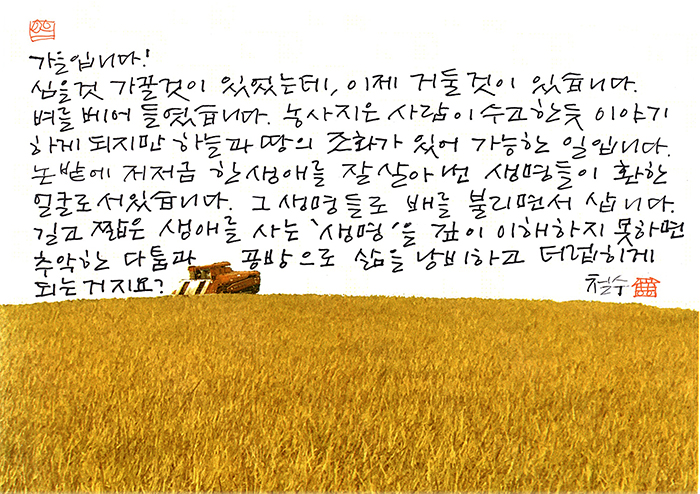 가을입니다!
심을것 가꿀것이 있었는데, 이제 거둘것이 있습니다.
벼를 베어 들였습니다. 농사지은 사람이 수고한듯 이야기
하게 되지만 하늘과 땅의 조화가 있어 가능한 일입니다.
논밭에 저저금 한생애를 잘 살아 낸 생명들이 환한
얼굴로 서있습니다. 그 생명들로 배를 불리면서 삽니다.
길고 짧은 생애를 사는 '생명'을 깊이 이해하지 못하면
추악한 다툼과 공방으로 삶을 낭비하고 더럽히게
되는거지요?
철수